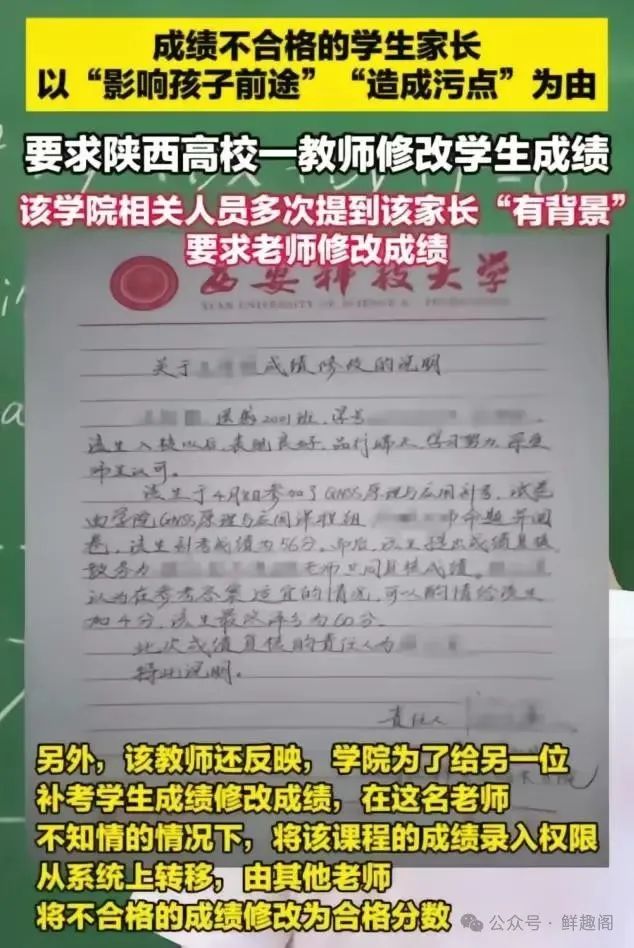 成绩不合格的学生家长
以“影响孩子前途”“造成污点”为由
要求陕西高校一教师修改学生成绩
该学院相关人员多次提到该家长“有背景”
要求老师修改成绩
西安科技大学
XI'AN UNIVERSITY OF SCIENCE &
关于 成绩修改的说明
2001班，学号
该生入校以后，表现良好，品行端正，学习努力，深受
师生认可。
该生于4月8日参加了GNSS原理与应用补考，试卷
由学院GNSS原理与应用课程组 命题并阅
卷，该生补考成绩为56分。而后，该生提出成绩复核，
教务办 老师共同复核成绩。
认为在参考答案适宜的情况，可以酌情给该生
加4分，该生最终评分为60分。
此次成绩复核的责任人为
特此说明。
责任人
另外，该教师还反映，学院为了给另一位
补考学生成绩修改成绩，在这名老师
不知情的情况下，将该课程的成绩录入权限
从系统上转移，由其他老师
将不合格的成绩修改为合格分数
公众号·鲜趣阁